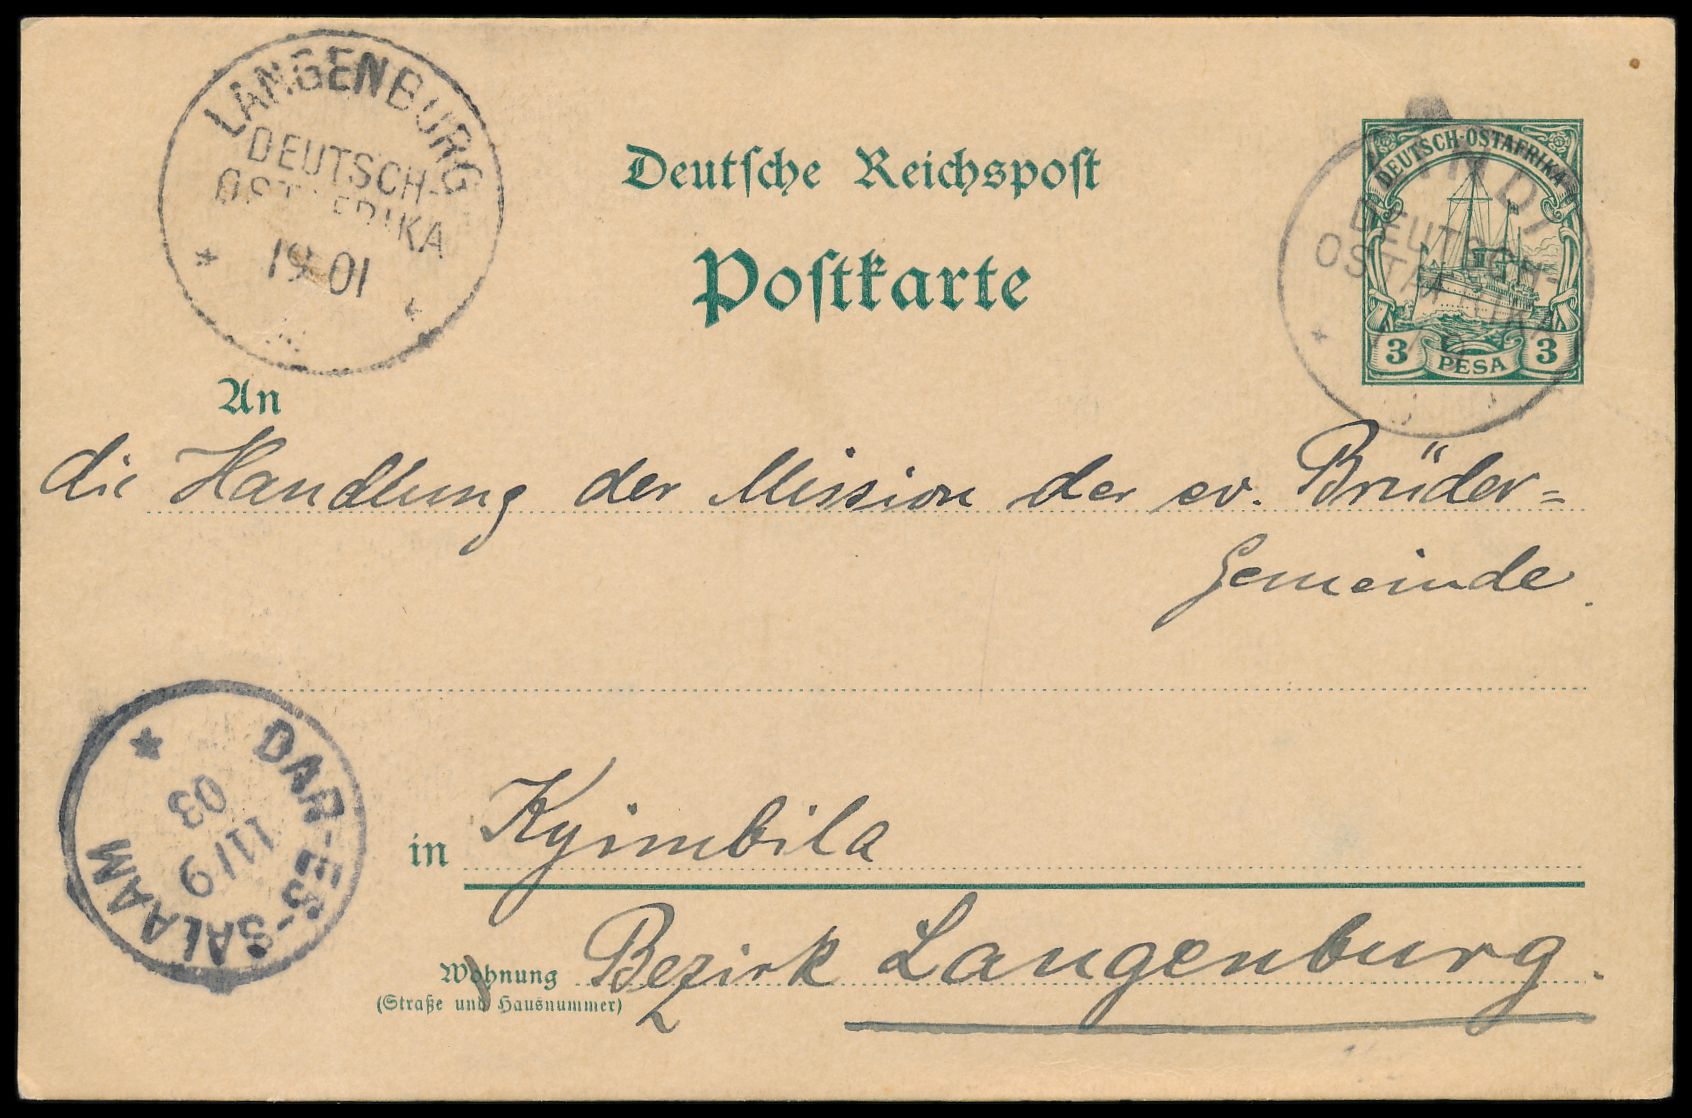 LANGENBURG
DEUTSCH-
OSTAFRIKA
19 01
Deutsche Reichspost
Postkarte
DEUTSCH-OSTAFRIKA
3 PESA 3
LINDI
DEUTSCH-
OSTAFRIKA
An
die Handlung der Mission der ev. Brüder=
Gemeinde.
DAR-ES-SALAAM
11/9
03
in Kyimbila
Wohnung Bezirk Langenburg.
(Straße und Hausnummer)